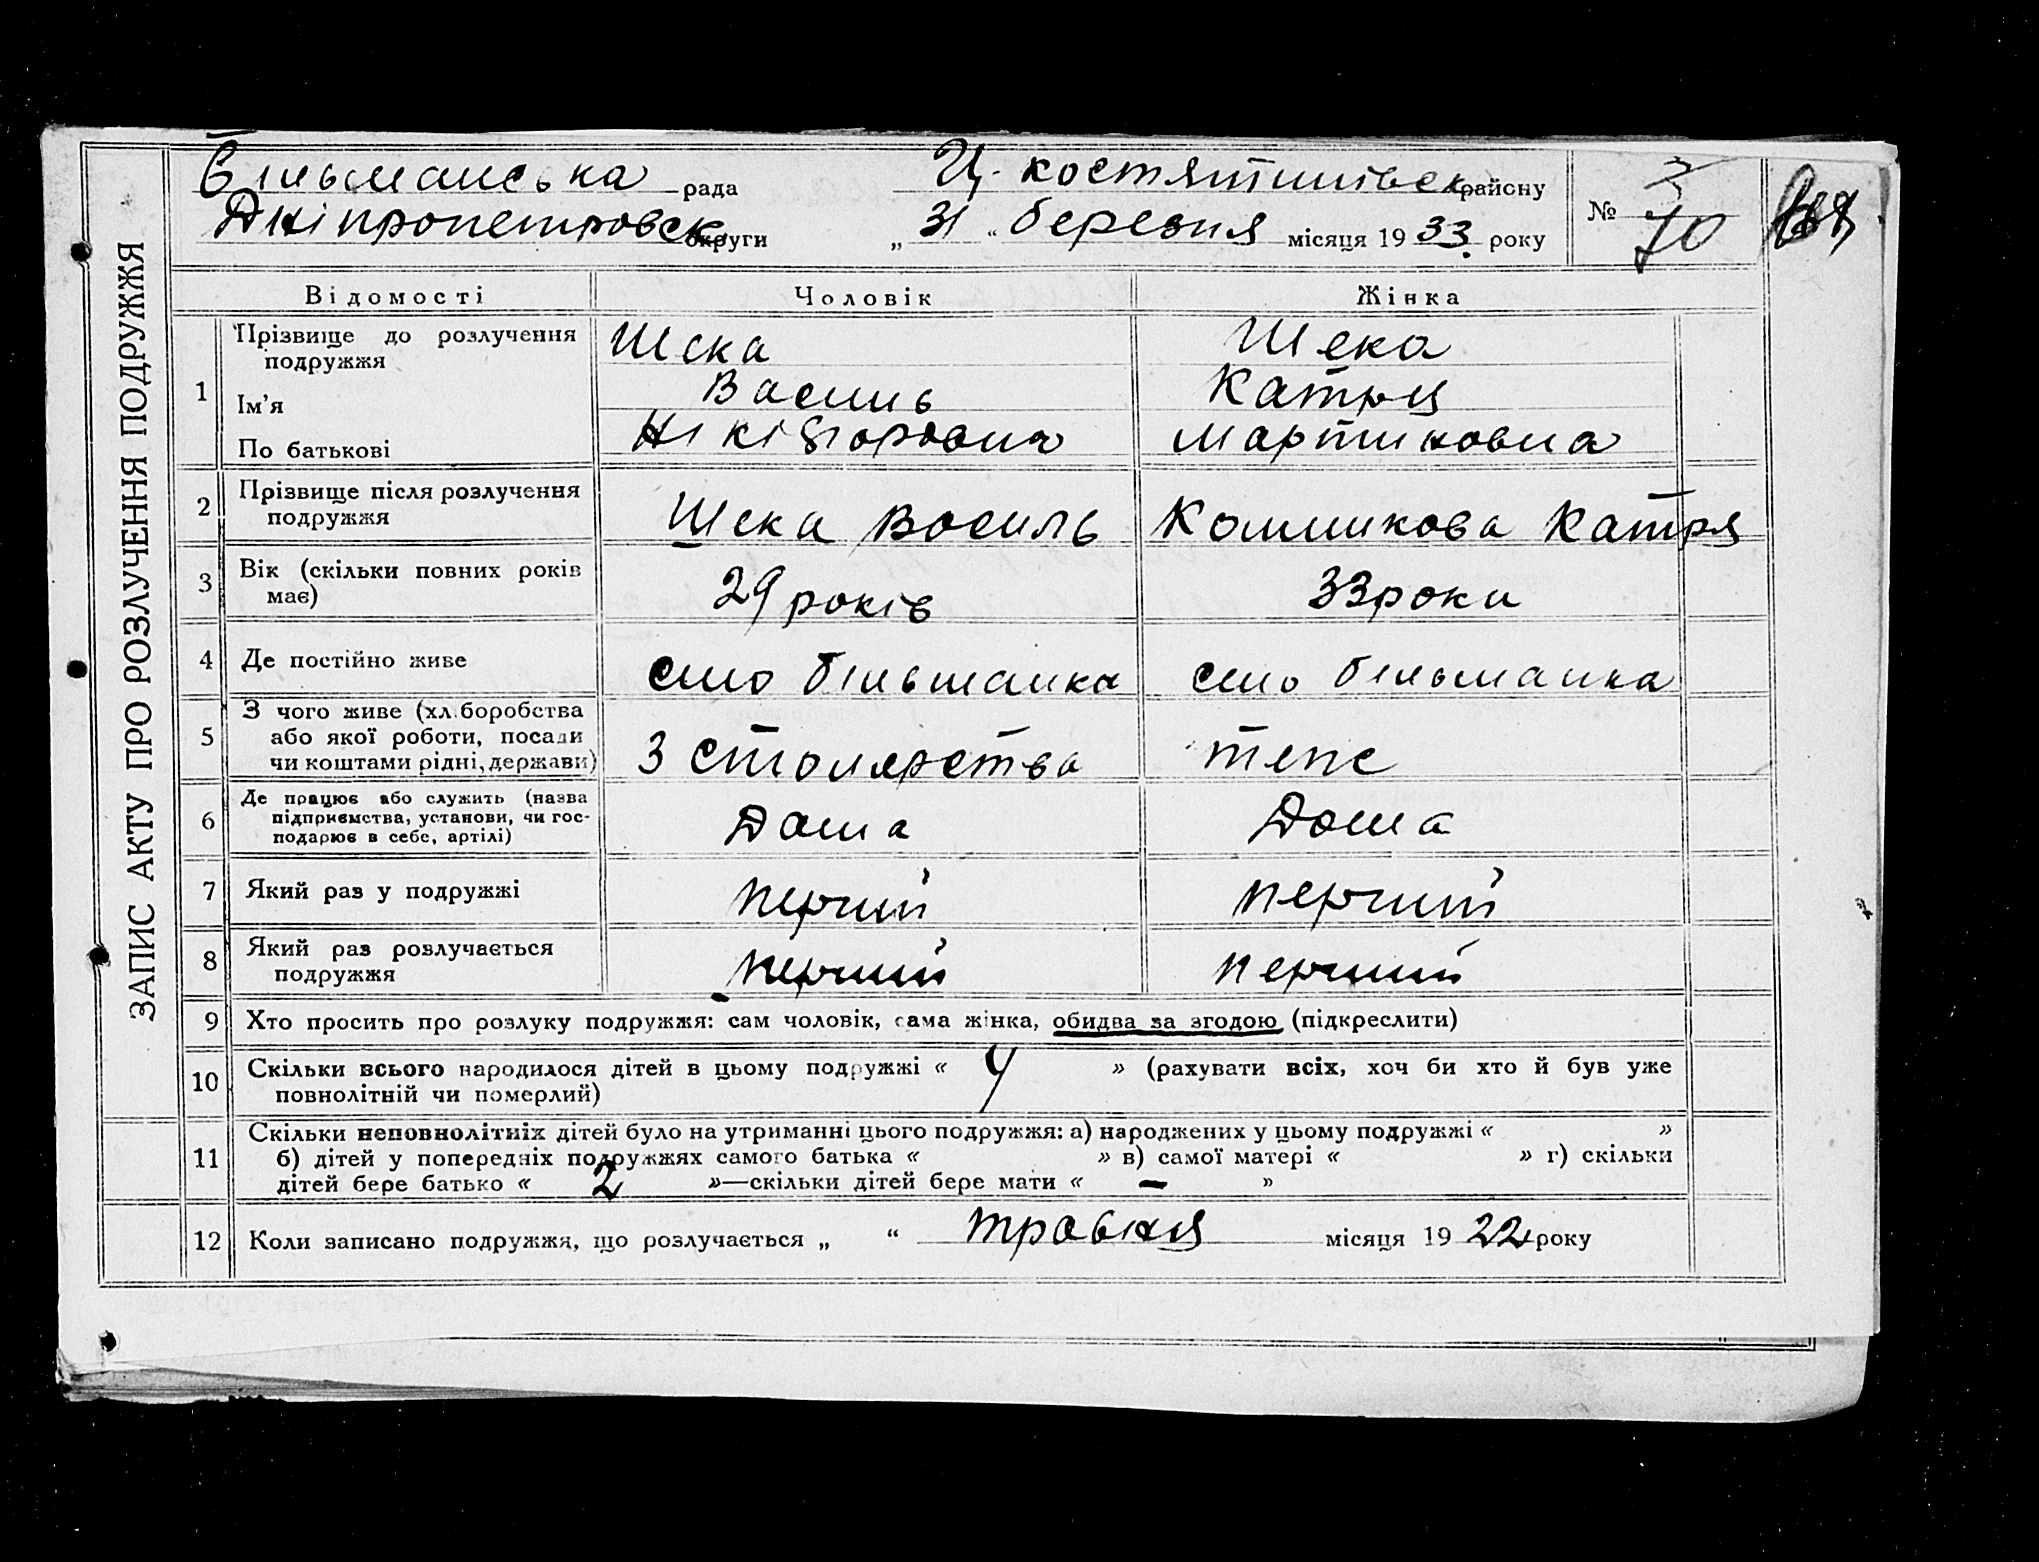 ЗАПИС АКТУ ПРО РОЗЛУЧЕННЯ ПОДРУЖЖЯ
Більманська рада Ц. костянтинівськ району
Дніпропетровск округи „ 31 “ березня місяця 19 33. року
№ 3
70
Відомості Чоловік Жінка
1 Прізвище до розлучення подружжя Шека Шека
Ім'я Василь Катря
По батькові Нікіфорович Мартиновна
2 Прізвище після розлучення подружжя Шека Василь Комшикова Катря
3 Вік (скільки повних років має) 29 років 33 роки
4 Де постійно живе село Більманка село Більманка
5 З чого живе (хл.боробства або якої роботи, посади чи коштами рідні, держави) З столярства теж
6 Де працює або служить (назва підприємства, установи, чи господарює в себе, артілі) Дома Дома
7 Який раз у подружжі перший перший
8 Який раз розлучається подружжя перший перший
9 Хто просить про розлуку подружжя: сам чоловік, сама жінка, обидва за згодою (підкреслити)
10 Скільки всього народилося дітей в цьому подружжі « 4 » (рахувати всіх, хоч би хто й був уже
повнолітній чи померлий)
11 Скільки неповнолітніх дітей було на утриманні цього подружжя: а) народжених у цьому подружжі « »
б) дітей у попередніх подружжях самого батька « » в) самої матері « » г) скільки
дітей бере батько « 2 »—скільки дітей бере мати « – »
12 Коли записано подружжя, що розлучається „ “ травня місяця 19 22 року